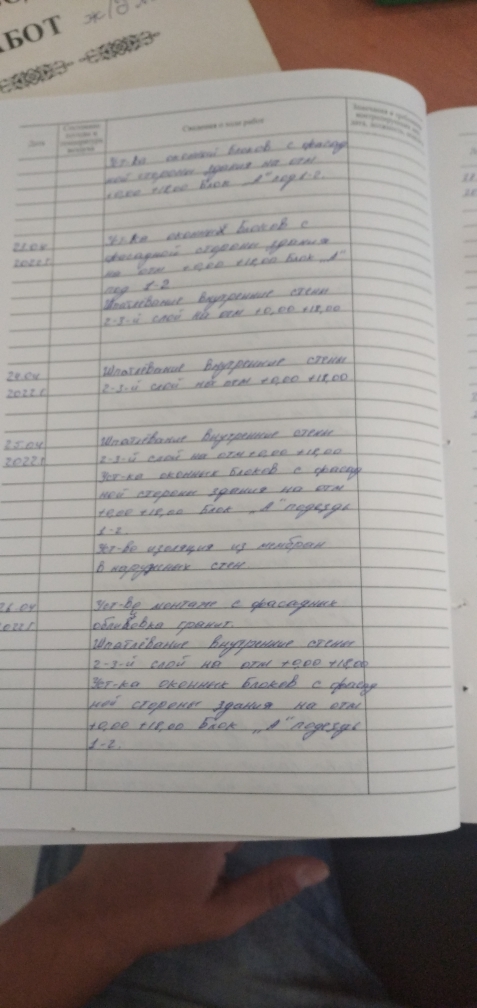 АБОТ
Дата
Состояние погоды и температура воздуха
Сведения о ходе работ
Уст-ка оконний блоков с фасад
ной стороны здания на отм
+0,00 +18,00 Блок „А" под 1-2.
21.04
2022г
Уст-ка оконных Блоков с
фасадной стороны здания
на отм +0,00 +18,00 Блок „А"
под 1-2
Шпатлевание внутренние стены
2-3-й слой на отм +0,00 +18,00
24.04
2022г.
Шпатлёвание внутренние стены
2-3-й слой на отм +0,00 +18,00
25.04
2022г
Шпатлёвание внутренние стены
2-3-й слой на отм +0,00 +18,00
Уст-ка оконных Блоков с фасад
ной стороны здания на отм
+0,00 +18,00 Блок „А" подезде
1-2.
Уст-во изоляция из мембран
в наружных стен
26.04
2022г
Уст-во монтаже с фасадних
облицовка гранит.
Шпатлёвание внутренние стены
2-3-й слой на отм +0,00 +18,00
Уст-ка оконных Блоков с фасад
ной стороны здания на отм
+0,00 +18,00 Блок „А" подезде
1-2.